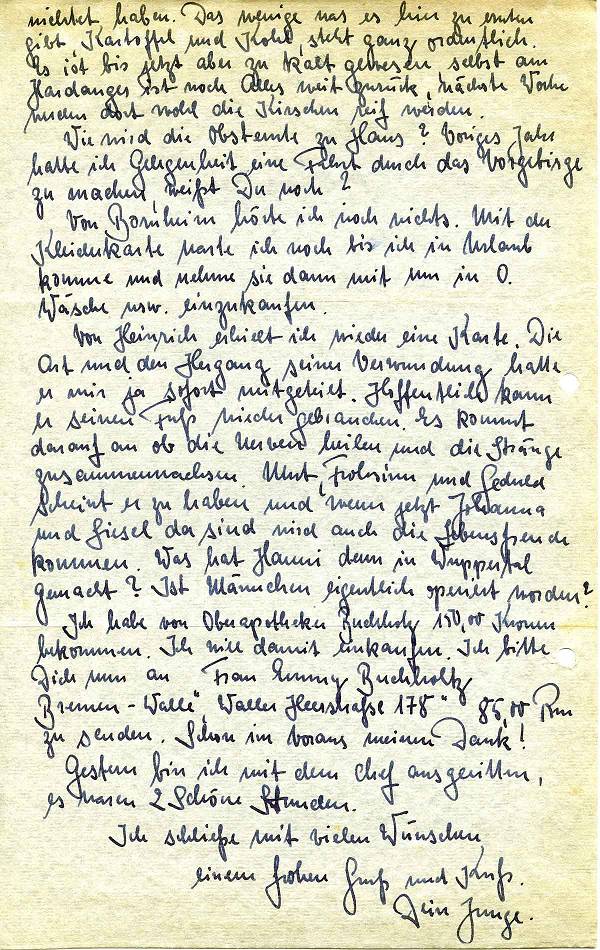 nichtet haben. Das wenige was es hier zu ernten
gibt, Kartoffel und Kohl, steht ganz ordentlich.
Es ist bis jetzt aber zu kalt gewesen, selbst am
Hardanger ist noch Alles weit zurück, nächste Woche
werden dort wohl die Kirschen reif werden.
Wie wird die Obsternte zu Haus? Voriges Jahr
hatte ich Gelegenheit eine Fahrt durch das Vorgebirge
zu machen, weißt Du noch?
Von Bornheim hörte ich noch nichts. Mit der
Kleiderkarte warte ich noch bis ich in Urlaub
komme und nehme sie dann mit um in O.
Wäsche usw. einzukaufen.
Von Heinrich erhielt ich wieder eine Karte. Die
Art und den Hergang seiner Verwundung hatte
er mir ja sofort mitgeteilt. Hoffentlich kann
er seinen Fuß wieder gebrauchen. Es kommt
darauf an ob die Nerven heilen und die Stränge
zusammenwachsen. Mut, Frohsinn und Geduld
scheint er zu haben und wenn jetzt Johanna
und Giesel da sind wird auch die Lebensfreude
kommen. Was hat Hanni denn in Wuppertal
gemacht? Ist Männchen eigentlich operiert worden?
Ich habe von Oberapotheker Buchholz 150,00 Kronen
bekommen. Ich will damit einkaufen. Ich bitte
Dich nun an Frau Emmy Buchholtz
Bremen-Walle", Waller Heerstraße 178" 85,00 Rm
zu senden. Schon im Voraus meinen Dank!
Gestern bin ich mit dem Chef ausgeritten,
es waren 2 schöne Stunden.
Ich schließe mit vielen Wünschen,
einem frohen Gruß und Kuß.
Dein Junge.